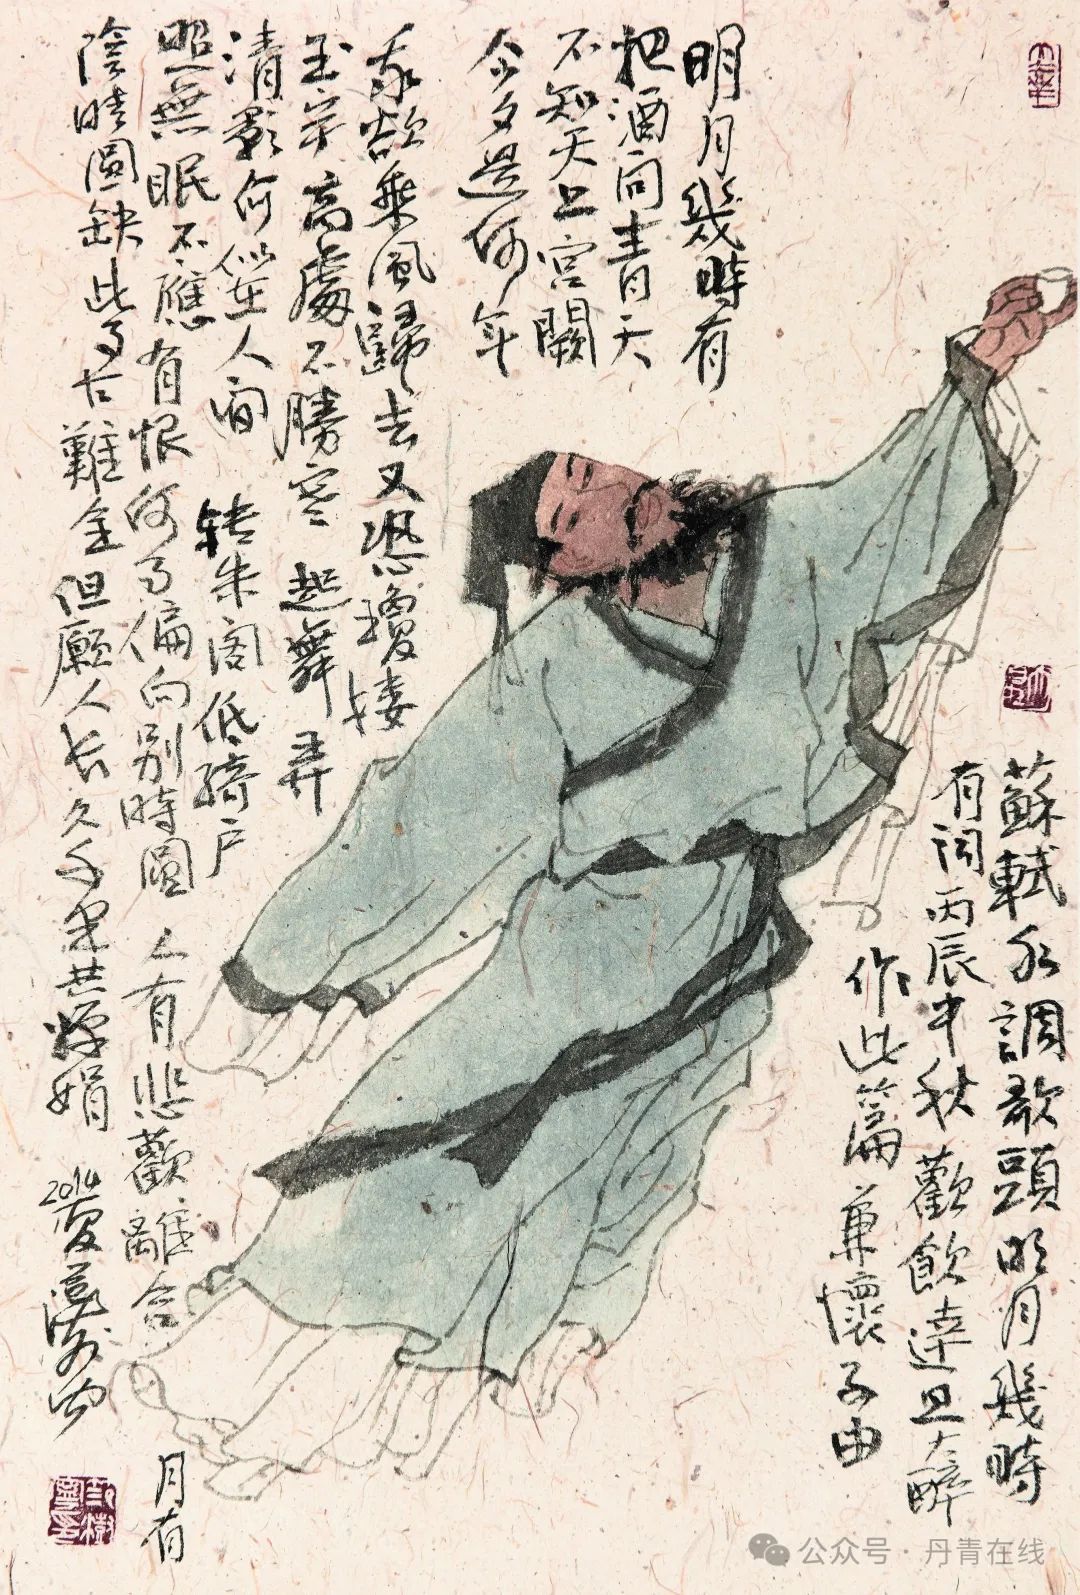 蘇軾水調歌頭明月幾時
有词丙辰中秋歡飲達旦大醉
作此篇兼懷子由
明月幾時有
把酒问青天
不知天上宫闕
今夕是何年
我欲乘風歸去又恐瓊樓
玉宇高處不勝寒 起舞弄
清影何似在人间 转朱阁低绮户
照無眠不應有恨何事偏向别時圓 人有悲歡離合 月有
陰晴圆缺此事古難全但願人长久千里共嬋娟
2014夏
公众号 · 丹青在线